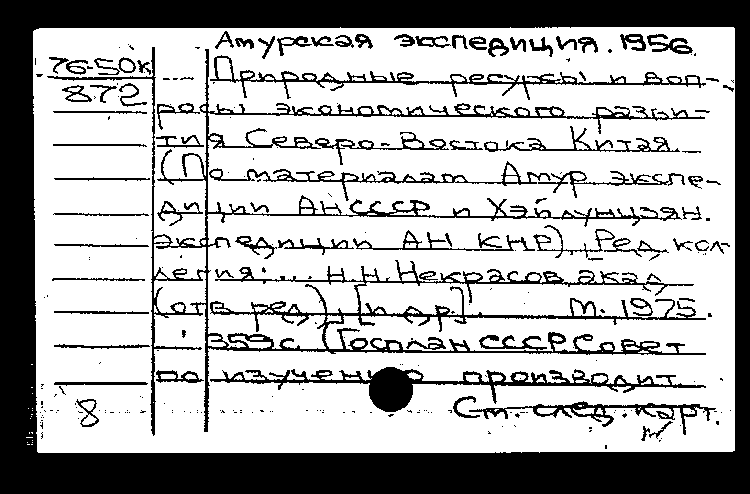 Амурская экспедиция. 1956.
76-50к
872
Природные ресурсы и воп-
росы экономического разви-
тия Северо-Востока Китая.
(По материалам Амур экспе-
диции АН СССР и Хэйлунцзян.
экспедиции АН КНР). Ред. кол-
легия: ... Н.Н. Некрасов, акад
(отв ред.), [и др]. М., 1975.
359с (Госплан СССР Совет
по изучению производит.
8
См. след. карт.